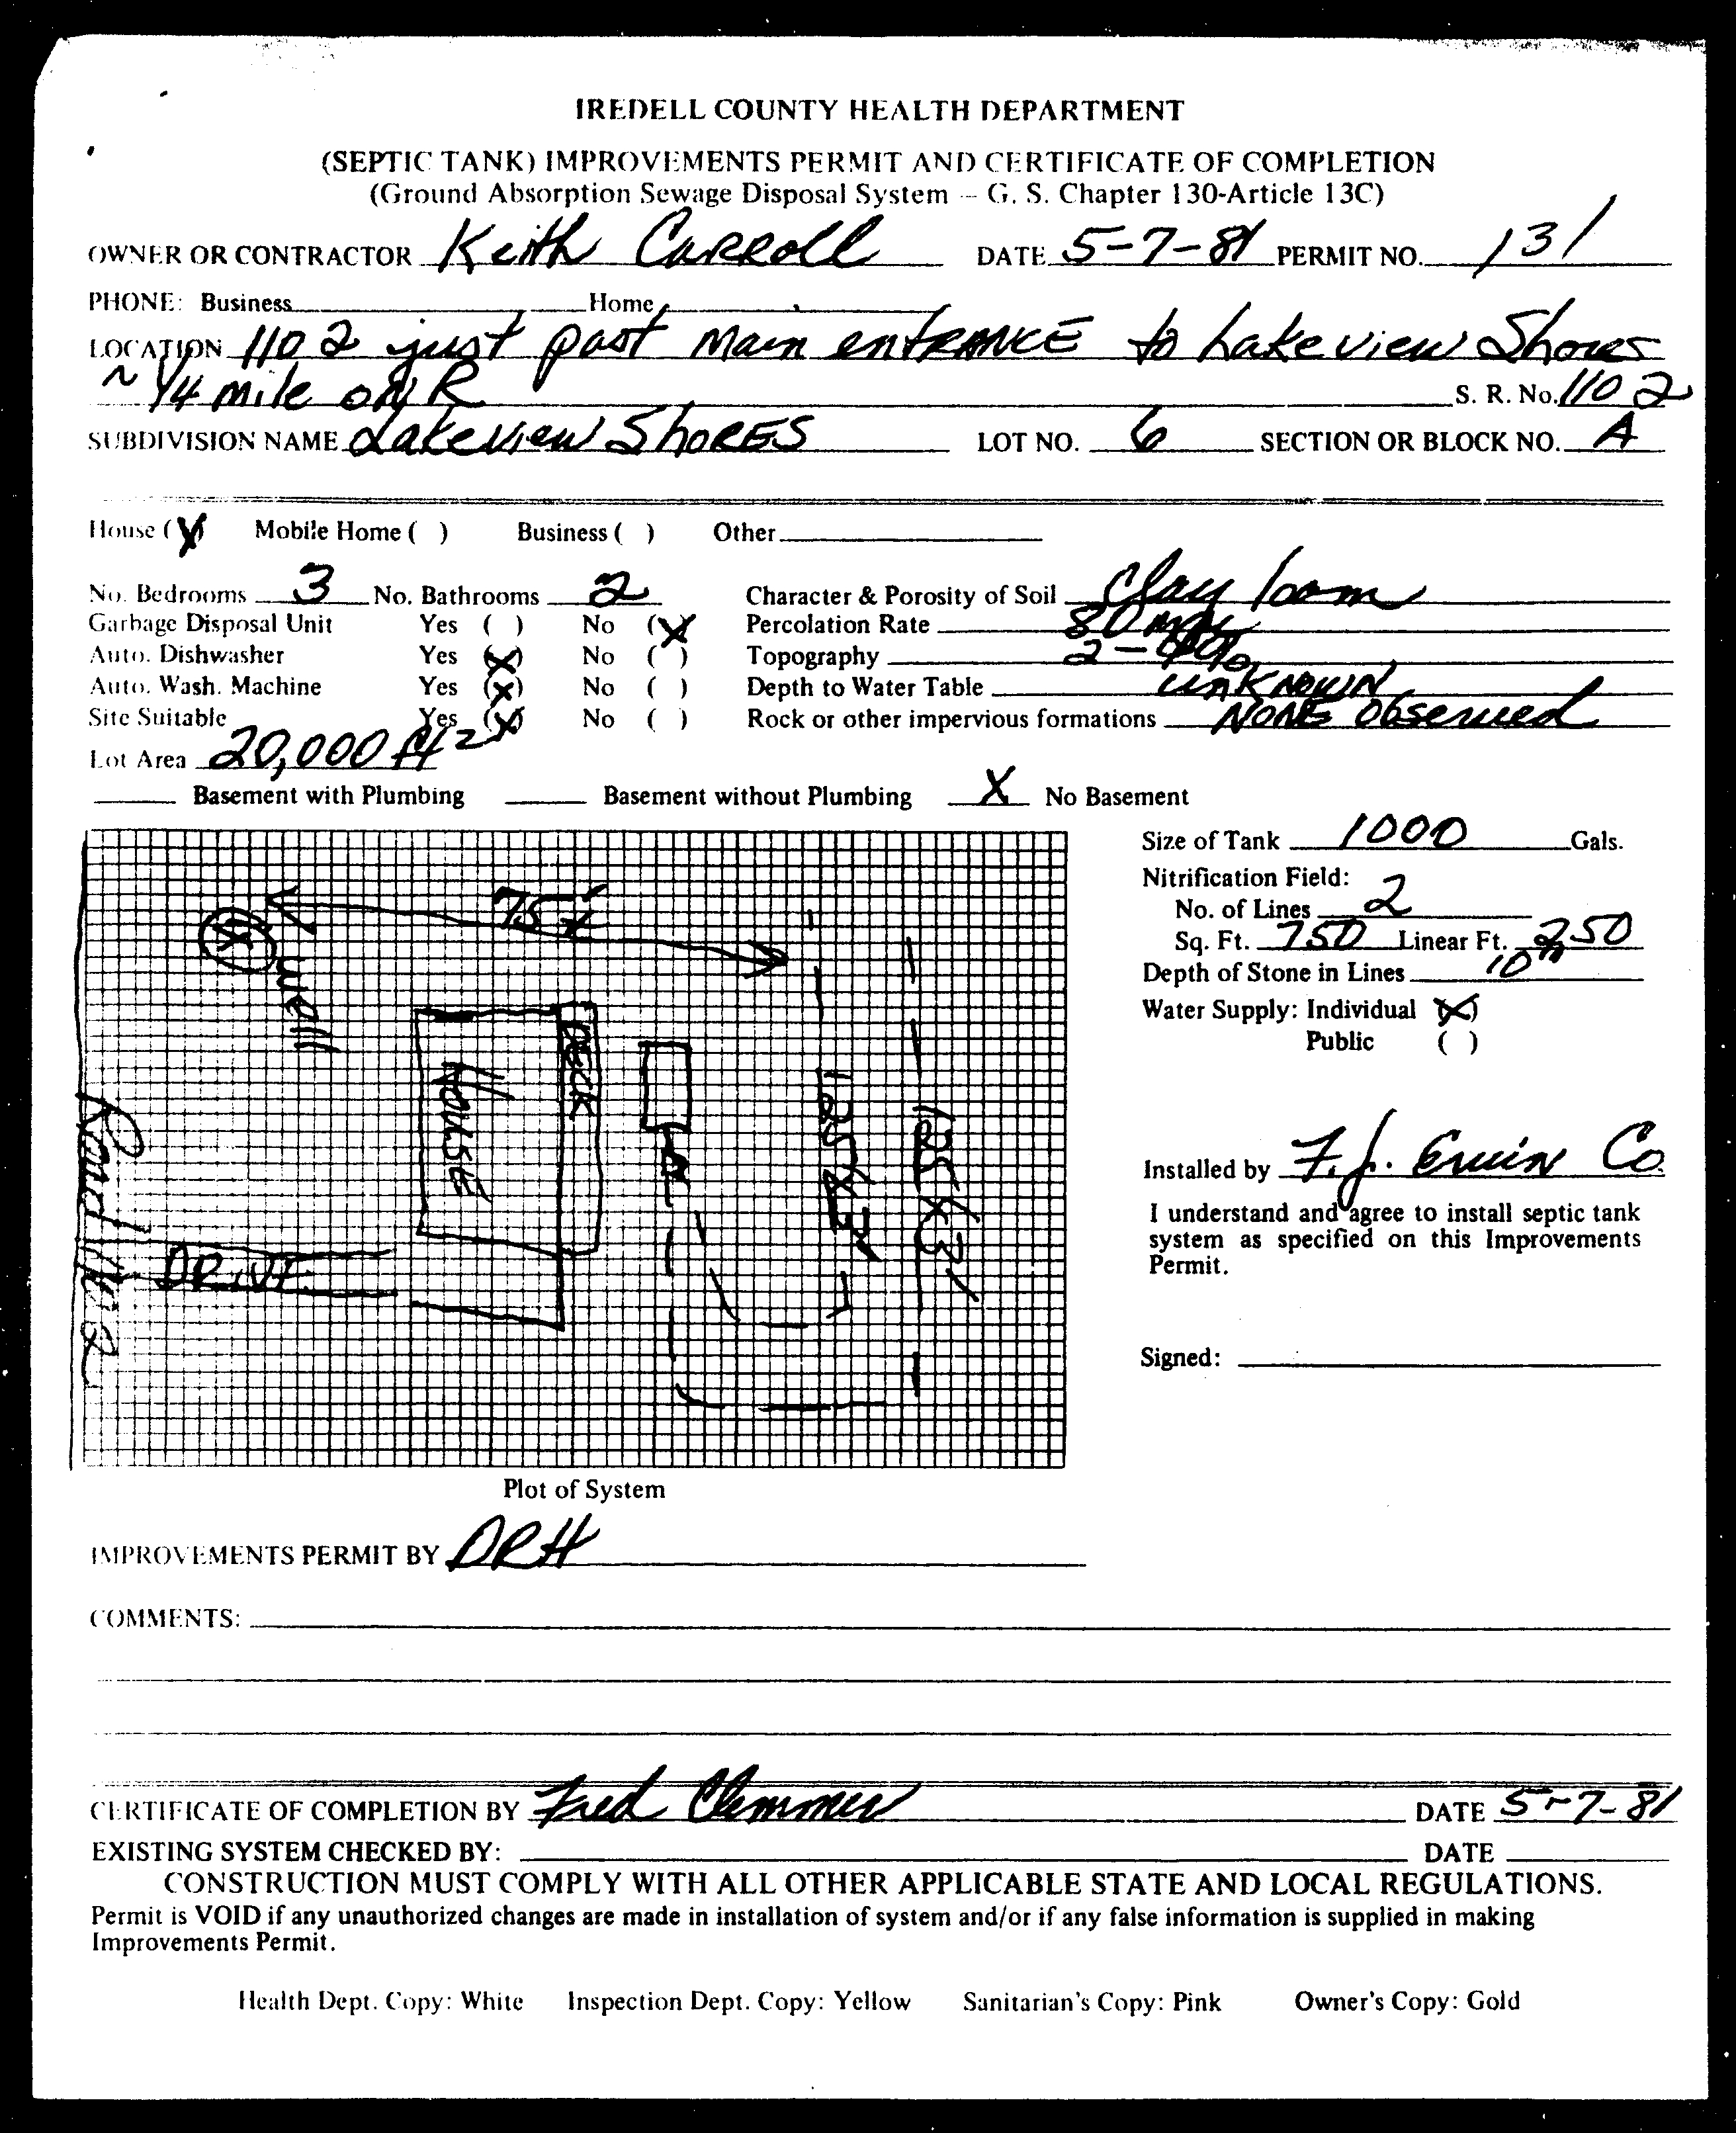 IREDELL COUNTY HEALTH DEPARTMENT
(SEPTIC TANK) IMPROVEMENTS PERMIT AND CERTIFICATE OF COMPLETION
(Ground Absorption Sewage Disposal System – G. S. Chapter 130-Article 13C)
OWNER OR CONTRACTOR Keith Carroll DATE 5-7-81 PERMIT NO. 131
PHONE: Business Home
LOCATION 1102 just past main entrance to Lakeview Shores
~ 1/4 mile on R S. R. No. 1102
SUBDIVISION NAME Lakeview Shores LOT NO. 6 SECTION OR BLOCK NO. A
House (X) Mobile Home ( ) Business ( ) Other
No. Bedrooms 3 No. Bathrooms 2 Character & Porosity of Soil Clay loam
Garbage Disposal Unit Yes ( ) No (X) Percolation Rate 80
Auto. Dishwasher Yes (X) No ( ) Topography 2-
Auto. Wash. Machine Yes (X) No ( ) Depth to Water Table unknown
Site Suitable Yes (X) No ( ) Rock or other impervious formations None observed
Lot Area 20,000 ft2
Basement with Plumbing Basement without Plumbing X No Basement
Size of Tank 1000 Gals.
Nitrification Field:
No. of Lines 2
Sq. Ft. 750 Linear Ft. 250
Depth of Stone in Lines 10"
Water Supply: Individual (X)
Public ( )
75'
well
HOUSE
DECK
125'x3'
125'x3'
Road 1102
DRIVE
Installed by F. J. Erwin Co.
I understand and agree to install septic tank
system as specified on this Improvements
Permit.
Signed:
Plot of System
IMPROVEMENTS PERMIT BY DRH
COMMENTS:
CERTIFICATE OF COMPLETION BY Fred Clemmer DATE 5-7-81
EXISTING SYSTEM CHECKED BY: DATE
CONSTRUCTION MUST COMPLY WITH ALL OTHER APPLICABLE STATE AND LOCAL REGULATIONS.
Permit is VOID if any unauthorized changes are made in installation of system and/or if any false information is supplied in making
Improvements Permit.
Health Dept. Copy: White Inspection Dept. Copy: Yellow Sanitarian's Copy: Pink Owner's Copy: Gold